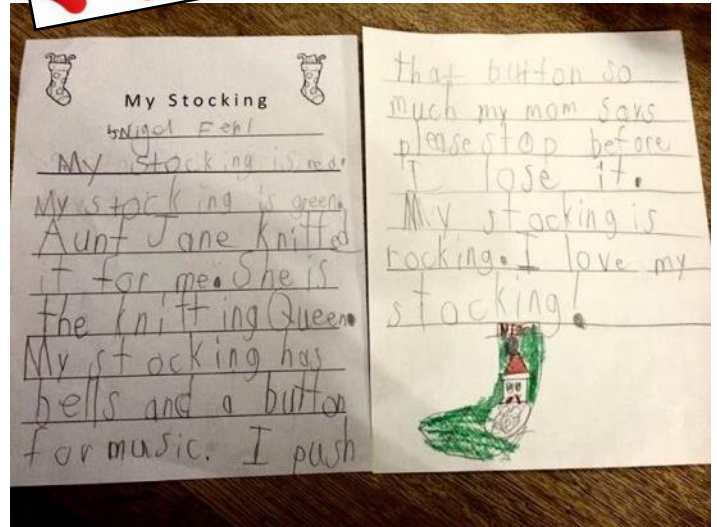 My Stocking
by Nigel Fehl
My stocking is red.
My stocking is green.
Aunt Jane knitted
it for me. She is
the knitting Queen.
My stocking has
bells and a button
for music. I push
that button so
much my mom says
please stop before
I lose it.
My stocking is
rocking. I love my
stocking!